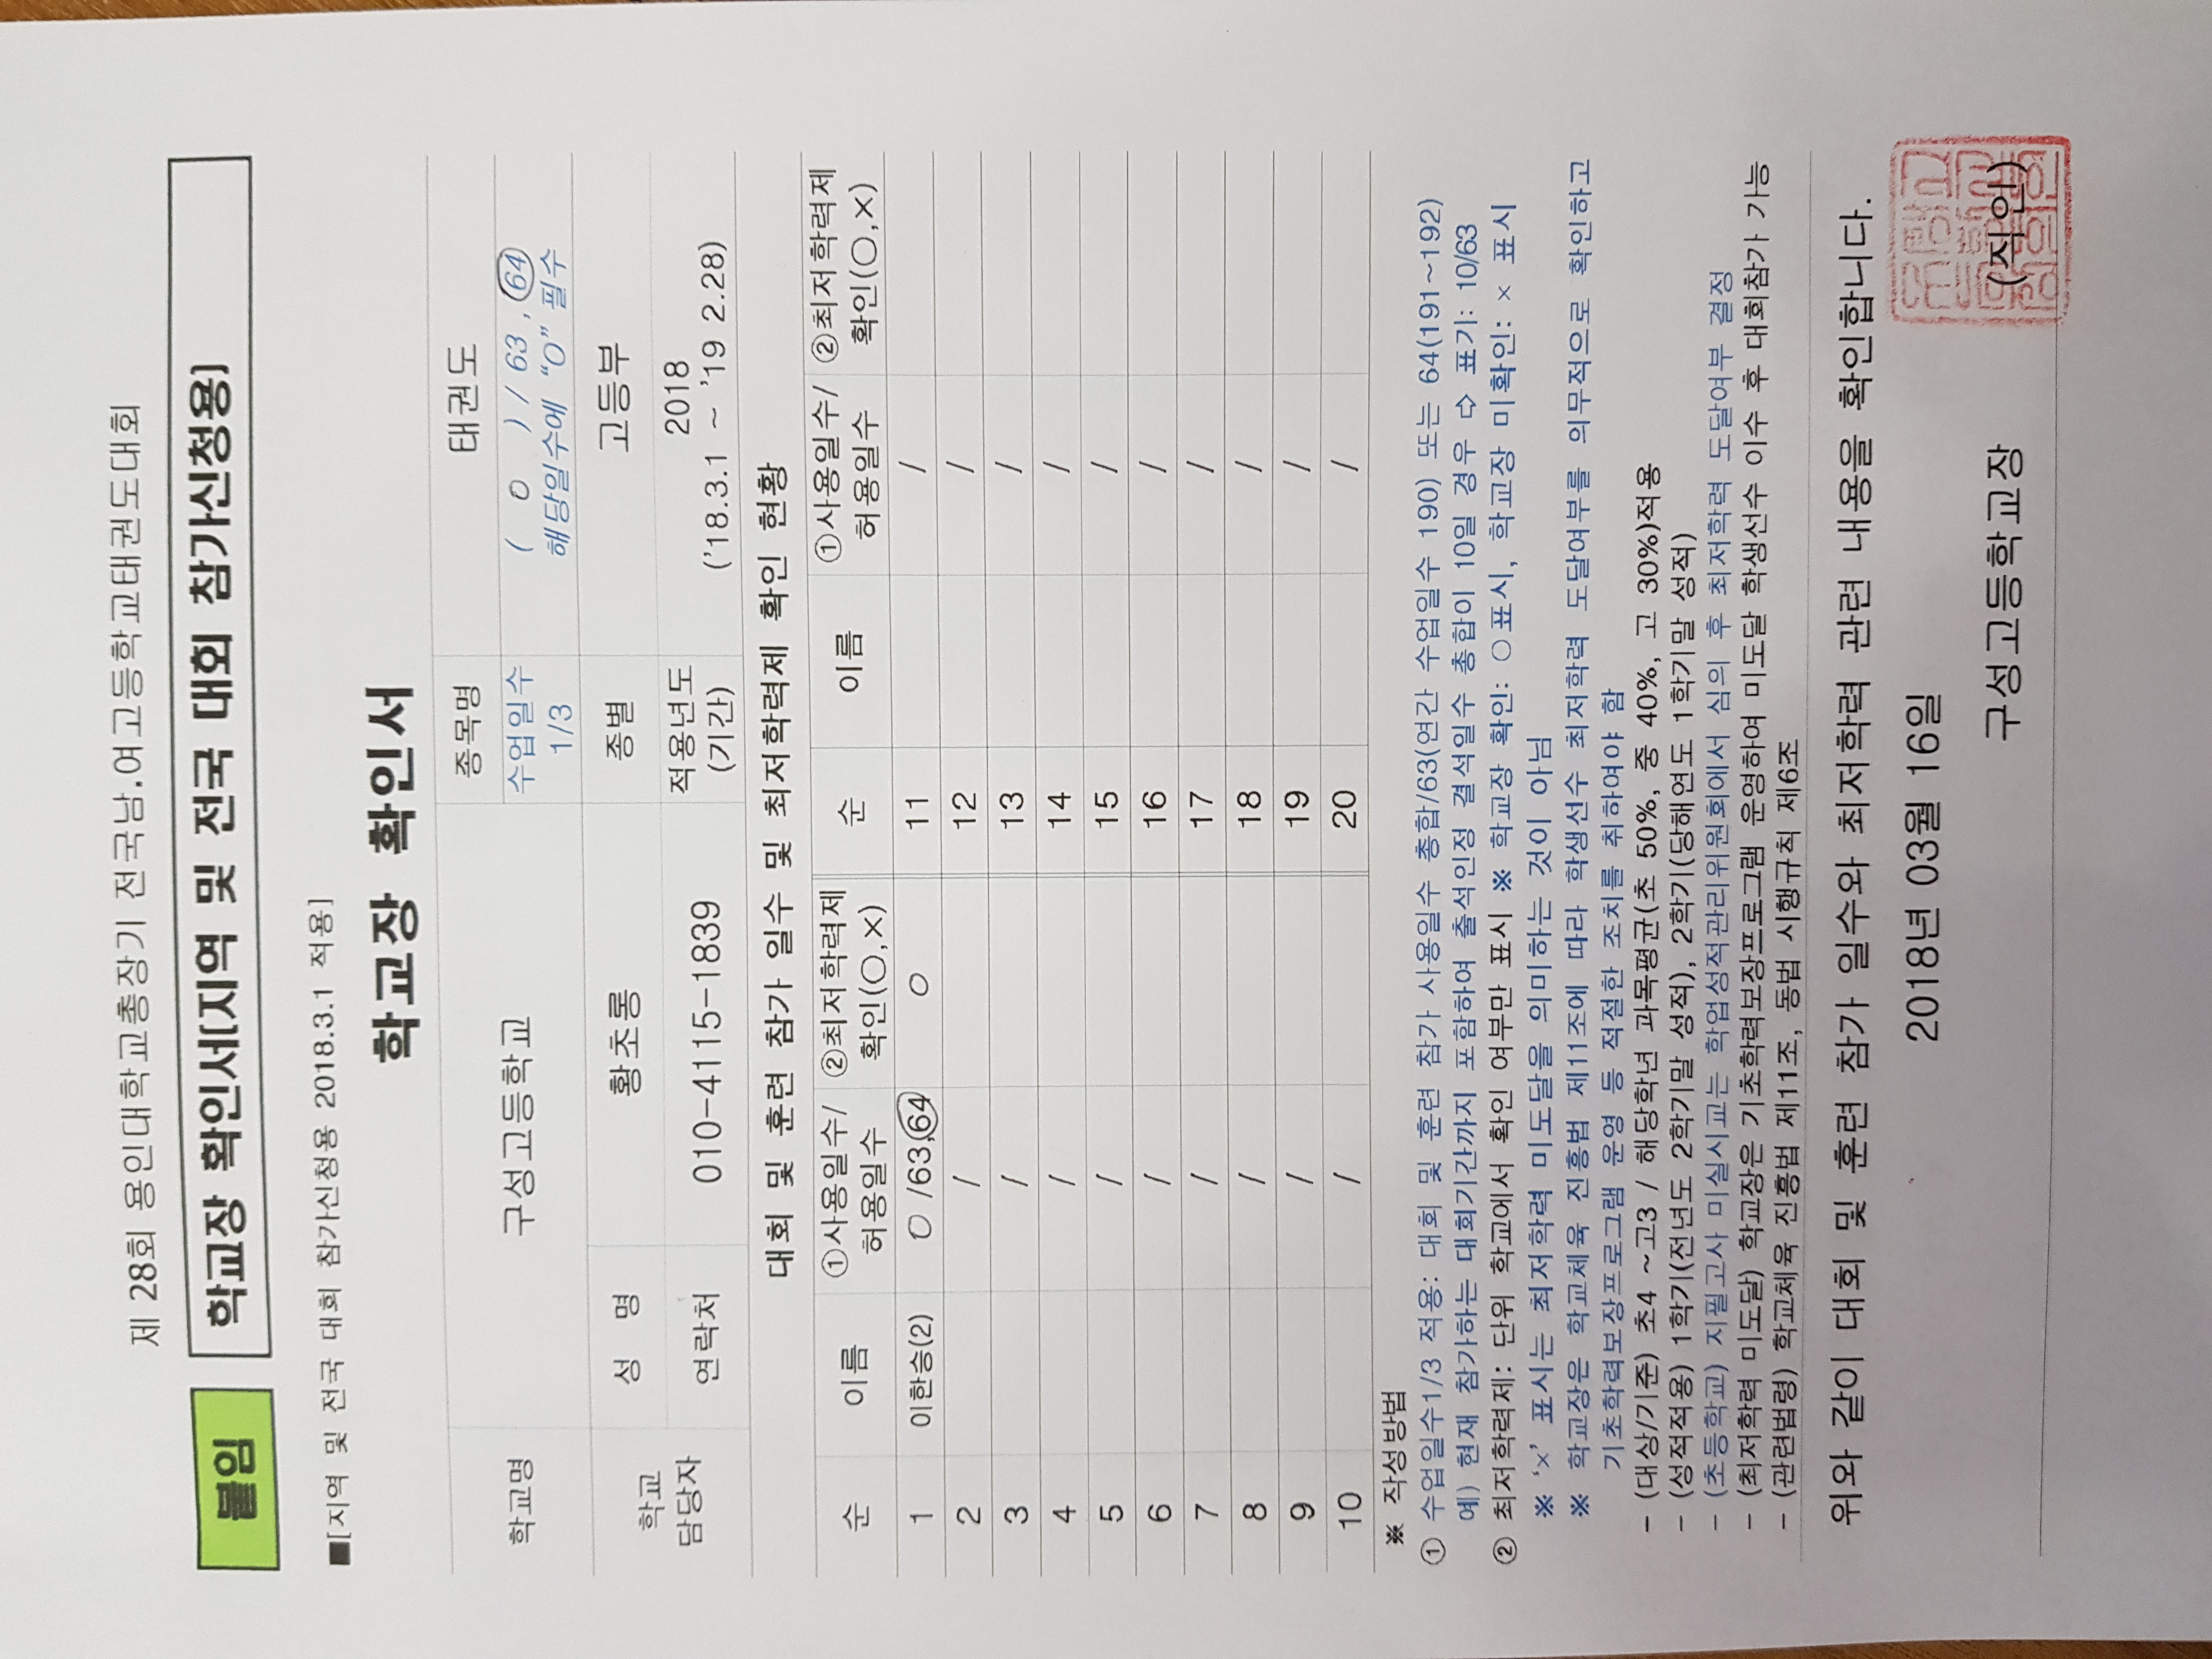 제 28회 용인대학교총장기 전국남.여고등학교태권도대회
붙임 학교장 확인서[지역 및 전국 대회 참가신청용]
■[지역 및 전국 대회 참가신청용 2018.3.1 적용]
학교장 확인서
학교명 구성고등학교 종목명 태권도
수업일수 1/3 ( 0 ) / 63 , 64
해당일수에 “O” 필수
학교 담당자 성 명 황초롱 종별 고등부
연락처 010-4115-1839 적용년도 (기간) 2018
('18.3.1 ~ '19 2.28)
대회 및 훈련 참가 일수 및 최저학력제 확인 현황
순 이름 ①사용일수/ 허용일수 ②최저학력제 확인(○,×) 순 이름 ①사용일수/ 허용일수 ②최저학력제 확인(○,×)
1 이한승(2) 0 /63,64 ○ 11 /
2 / 12 /
3 / 13 /
4 / 14 /
5 / 15 /
6 / 16 /
7 / 17 /
8 / 18 /
9 / 19 /
10 / 20 /
※ 작성방법
① 수업일수1/3 적용: 대회 및 훈련 참가 사용일수 총합/63(연간 수업일수 190) 또는 64(191~192)
예) 현재 참가하는 대회기간까지 포함하여 출석인정 결석일수 총합이 10일 경우 ⇨ 표기: 10/63
② 최저학력제: 단위 학교에서 확인 여부만 표시 ※ 학교장 확인: ○표시, 학교장 미확인: × 표시
※ ‘×’ 표시는 최저학력 미도달을 의미하는 것이 아님
※ 학교장은 학교체육 진흥법 제11조에 따라 학생선수 최저학력 도달여부를 의무적으로 확인하고
기초학력보장프로그램 운영 등 적절한 조치를 취하여야 함
- (대상/기준) 초4 ~고3 / 해당학년 과목평균(초 50%, 중 40%, 고 30%)적용
- (성적적용) 1학기(전년도 2학기말 성적), 2학기(당해연도 1학기말 성적)
- (초등학교) 지필고사 미실시교는 학업성적관리위원회에서 심의 후 최저학력 도달여부 결정
- (최저학력 미도달) 학교장은 기초학력보장프로그램 운영하여 미도달 학생선수 이수 후 대회참가 가능
- (관련법령) 학교체육 진흥법 제11조, 동법 시행규칙 제6조
위와 같이 대회 및 훈련 참가 일수와 최저학력 관련 내용을 확인합니다.
2018년 03월 16일
구성고등학교장 (직인)